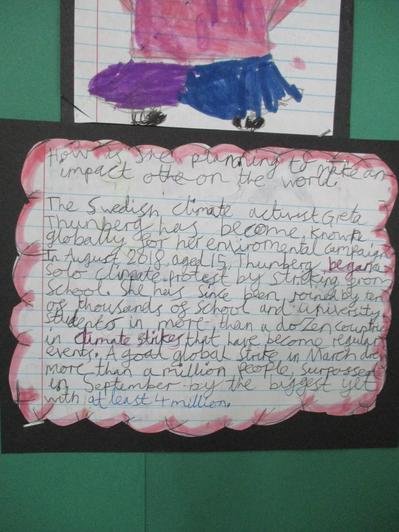 How is she planning to make an
impact on the world.
The Swedish climate activist Greta
Thunberg has become known
globally for her enviromental campaign
In August 2018, aged 15, Thunberg began a
solo climate protest by striking from
School. She has since been joined by ten
of thousands of school and university
students in more than a dozen countrie
in climate strikes that have become regular
events. A goal global strike in March drew
more than a million people, surpassed
in September by the biggest yet
with at least 4 million.